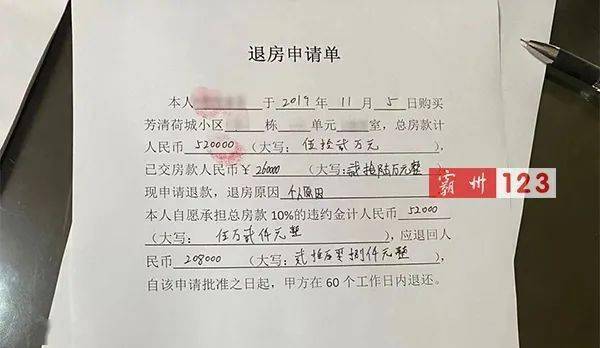 退房申请单
本人 于 2019 年 11 月 5 日购买
芳清荷城小区 栋 单元 室，总房款计
人民币 520000 （大写： 伍拾贰万元 ）
已交房款人民币￥ 260000 （大写： 贰拾陆万元整
现申请退款，退房原因 个人原因
霸州123
本人自愿承担总房款 10%的违约金计人民币 52000
（大写： 伍万贰仟元整 ），应退回人
民币 208000 （大写： 贰拾万零捌仟元整 ），
自该申请批准之日起，甲方在 60 个工作日内退还。